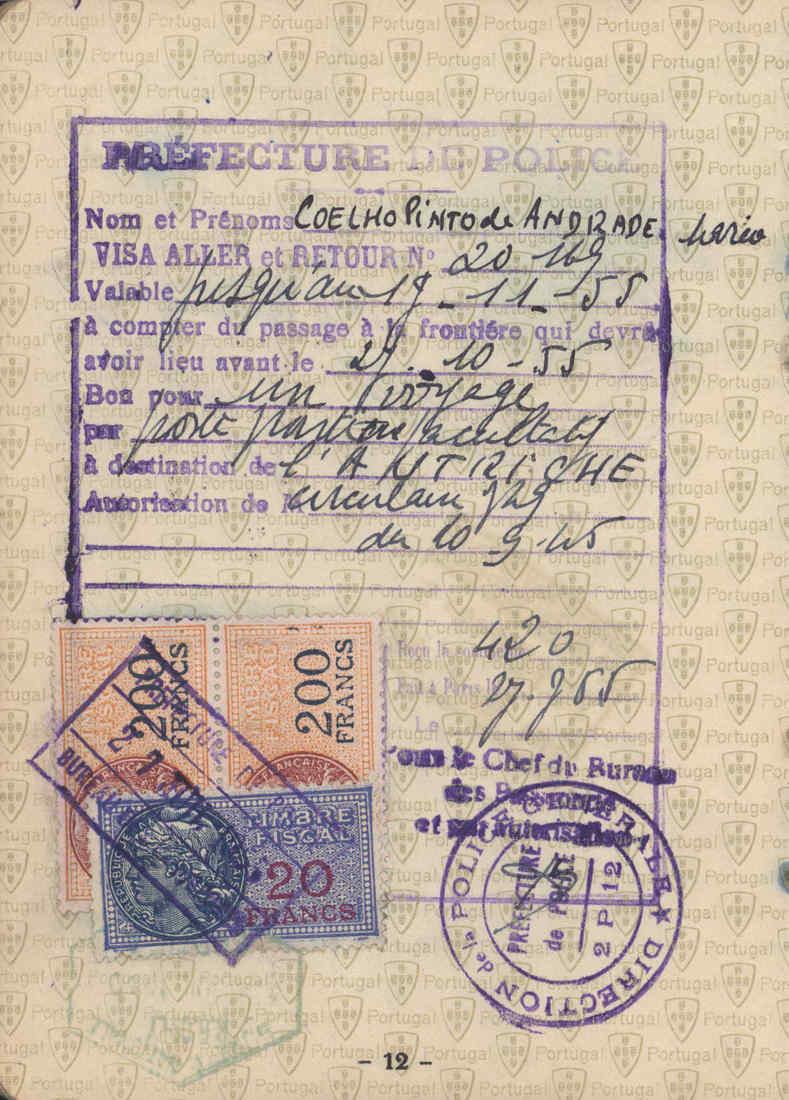 PRÉFECTURE DE POLICE
Nom et Prénoms COELHO PINTO de ANDRADE Mario
VISA ALLER et RETOUR N° 20 169
Valable jusqu'au 19-11-55
à compter du passage à la frontière qui devra
avoir lieu avant le 27.10-55
Bon pour un voyage
par poste frontière facultatif
à destination de l'AUTRICHE
Autorisation de circulaire 329
du 10 9.45
Reçu la somme de 420
Fait à Paris le 27.7 55
Le
Pour le Chef du Bureau
des Passeports
et par autorisation
200 FRANCS
200 FRANCS
TIMBRE FISCAL
TIMBRE FISCAL
FRANÇAISE
FRANÇAISE
TIMBRE FISCAL
20 FRANCS
REPUBLIQUE FRANÇAISE
DIRECTION de la POLICE GENERALE
PREFECTURE de POLICE
2 P 12
- 12 -
Portugal